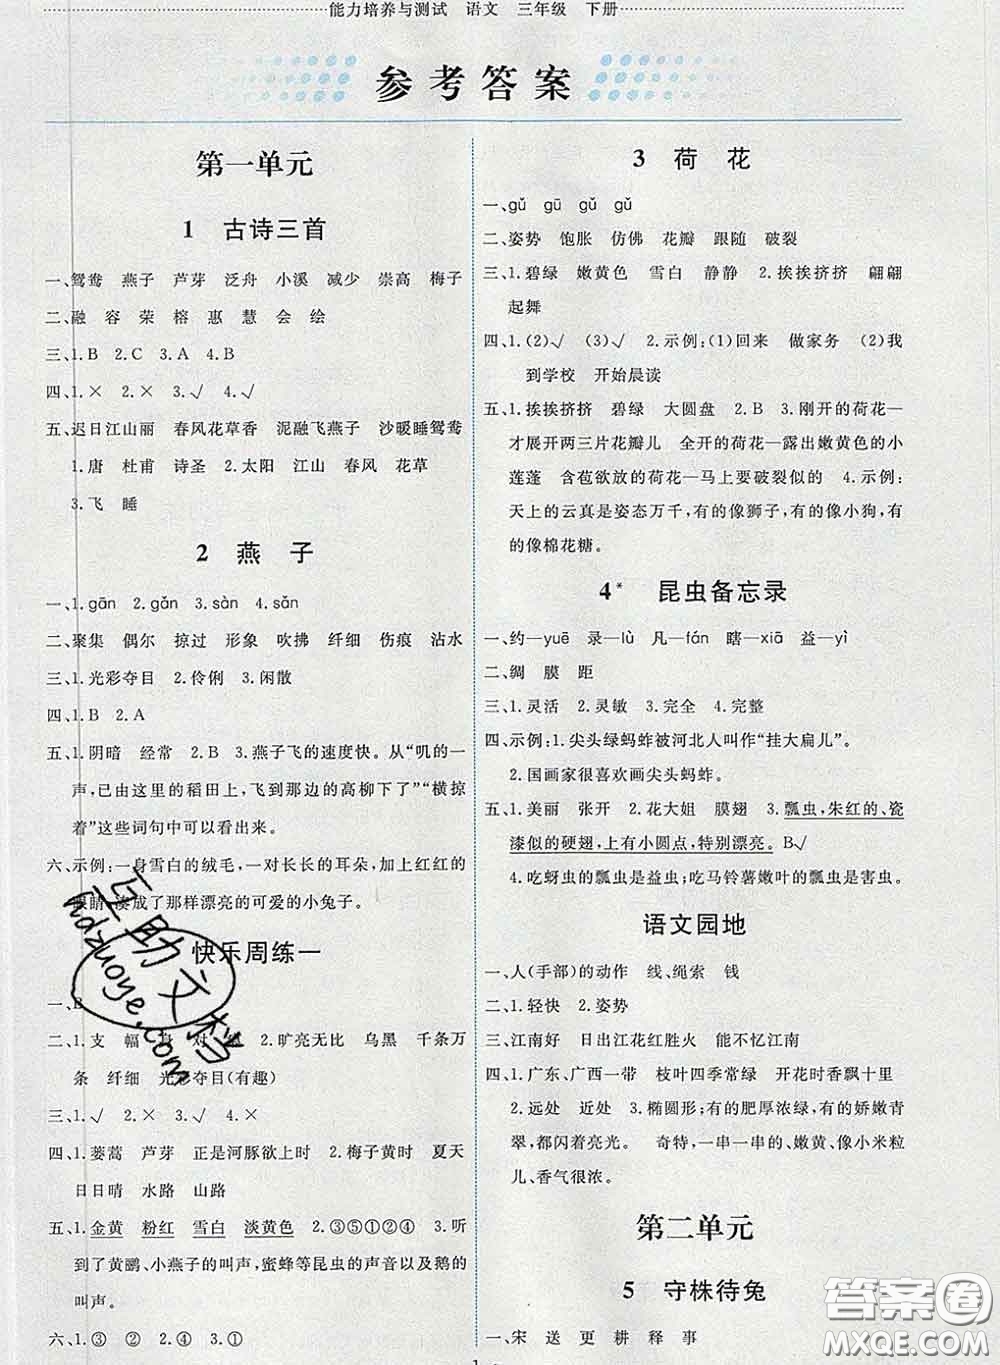 能力培养与测试 语文 三年级 下册
参考答案
第一单元
1 古诗三首
一、鸳鸯 燕子 芦芽 泛舟 小溪 减少 崇高 梅子
二、融 容 荣 榕 惠 慧 会 绘
三、1.B 2.C 3.A 4.B
四、1.× 2.× 3.√ 4.√
五、迟日江山丽 春风花草香 泥融飞燕子 沙暖睡鸳鸯
1.唐 杜甫 诗圣 2.太阳 江山 春风 花草
3.飞 睡
2 燕 子
一、1.gān 2.gǎn 3.sàn 4.sǎn
二、聚集 偶尔 掠过 形象 吹拂 纤细 伤痕 沾水
三、1.光彩夺目 2.伶俐 3.闲散
四、1.B 2.A
五、1.阴暗 经常 2.B 3.燕子飞的速度快。从“叽的一
声,已由这里的稻田上,飞到那边的高柳下了”“横掠
着”这些词句中可以看出来。
六、示例:一身雪白的绒毛,一对长长的耳朵,加上红红的
眼睛,凑成了那样漂亮的可爱的小兔子。
快乐周练一
一、B
二、1.支 幅 对 2.旷亮无比 乌黑 千条万
条 纤细 光彩夺目(有趣)
三、1.√ 2.× 3.× 4.√ 5.×
四、1.蒌蒿 芦芽 正是河豚欲上时 2.梅子黄时 夏天
日日晴 水路 山路
五、1.金黄 粉红 雪白 淡黄色 2.③⑤①②④ 3.听
到了黄鹂、小燕子的叫声,蜜蜂等昆虫的声音以及鹅的
叫声。
六、1.③ ② 2.④ 3.①
3 荷 花
一、gǔ gū gǔ gǔ
二、姿势 饱胀 仿佛 花瓣 跟随 破裂
三、1.碧绿 嫩黄色 雪白 静静 2.挨挨挤挤 翩翩
起舞
四、1.(2)√ (3)√ 2.示例:(1)回来 做家务 (2)我
到学校 开始晨读
五、1.挨挨挤挤 碧绿 大圆盘 2.B 3.刚开的荷花—
才展开两三片花瓣儿 全开的荷花—露出嫩黄色的小
莲蓬 含苞欲放的荷花—马上要破裂似的 4.示例:
天上的云真是姿态万千,有的像狮子,有的像小狗,有
的像棉花糖。
4* 昆虫备忘录
一、约—yuē 录—lù 凡—fán 瞎—xiā 益—yì
二、绸 膜 距
三、1.灵活 2.灵敏 3.完全 4.完整
四、示例:1.尖头绿蚂蚱被河北人叫作“挂大扁儿”。
2.国画家很喜欢画尖头蚂蚱。
五、1.美丽 张开 2.花大姐 膜翅 3.瓢虫,朱红的、瓷
漆似的硬翅,上有小圆点,特别漂亮。 B√
4.吃蚜虫的瓢虫是益虫;吃马铃薯嫩叶的瓢虫是害虫。
语文园地
一、人(手部)的动作 线、绳索 钱
二、1.轻快 2.姿势
三、江南好 日出江花红胜火 能不忆江南
四、1.广东、广西一带 枝叶四季常绿 开花时香飘十里
2.远处 近处 3.椭圆形;有的肥厚浓绿,有的娇嫩青
翠,都闪着亮光。 奇特,一串一串的、嫩黄、像小米粒
儿、香气很浓。
第二单元
5 守株待兔
一、宋 送 更 耕 释 事
1
互助文档
hdzuoye.com
答案圈
MXQE.COM